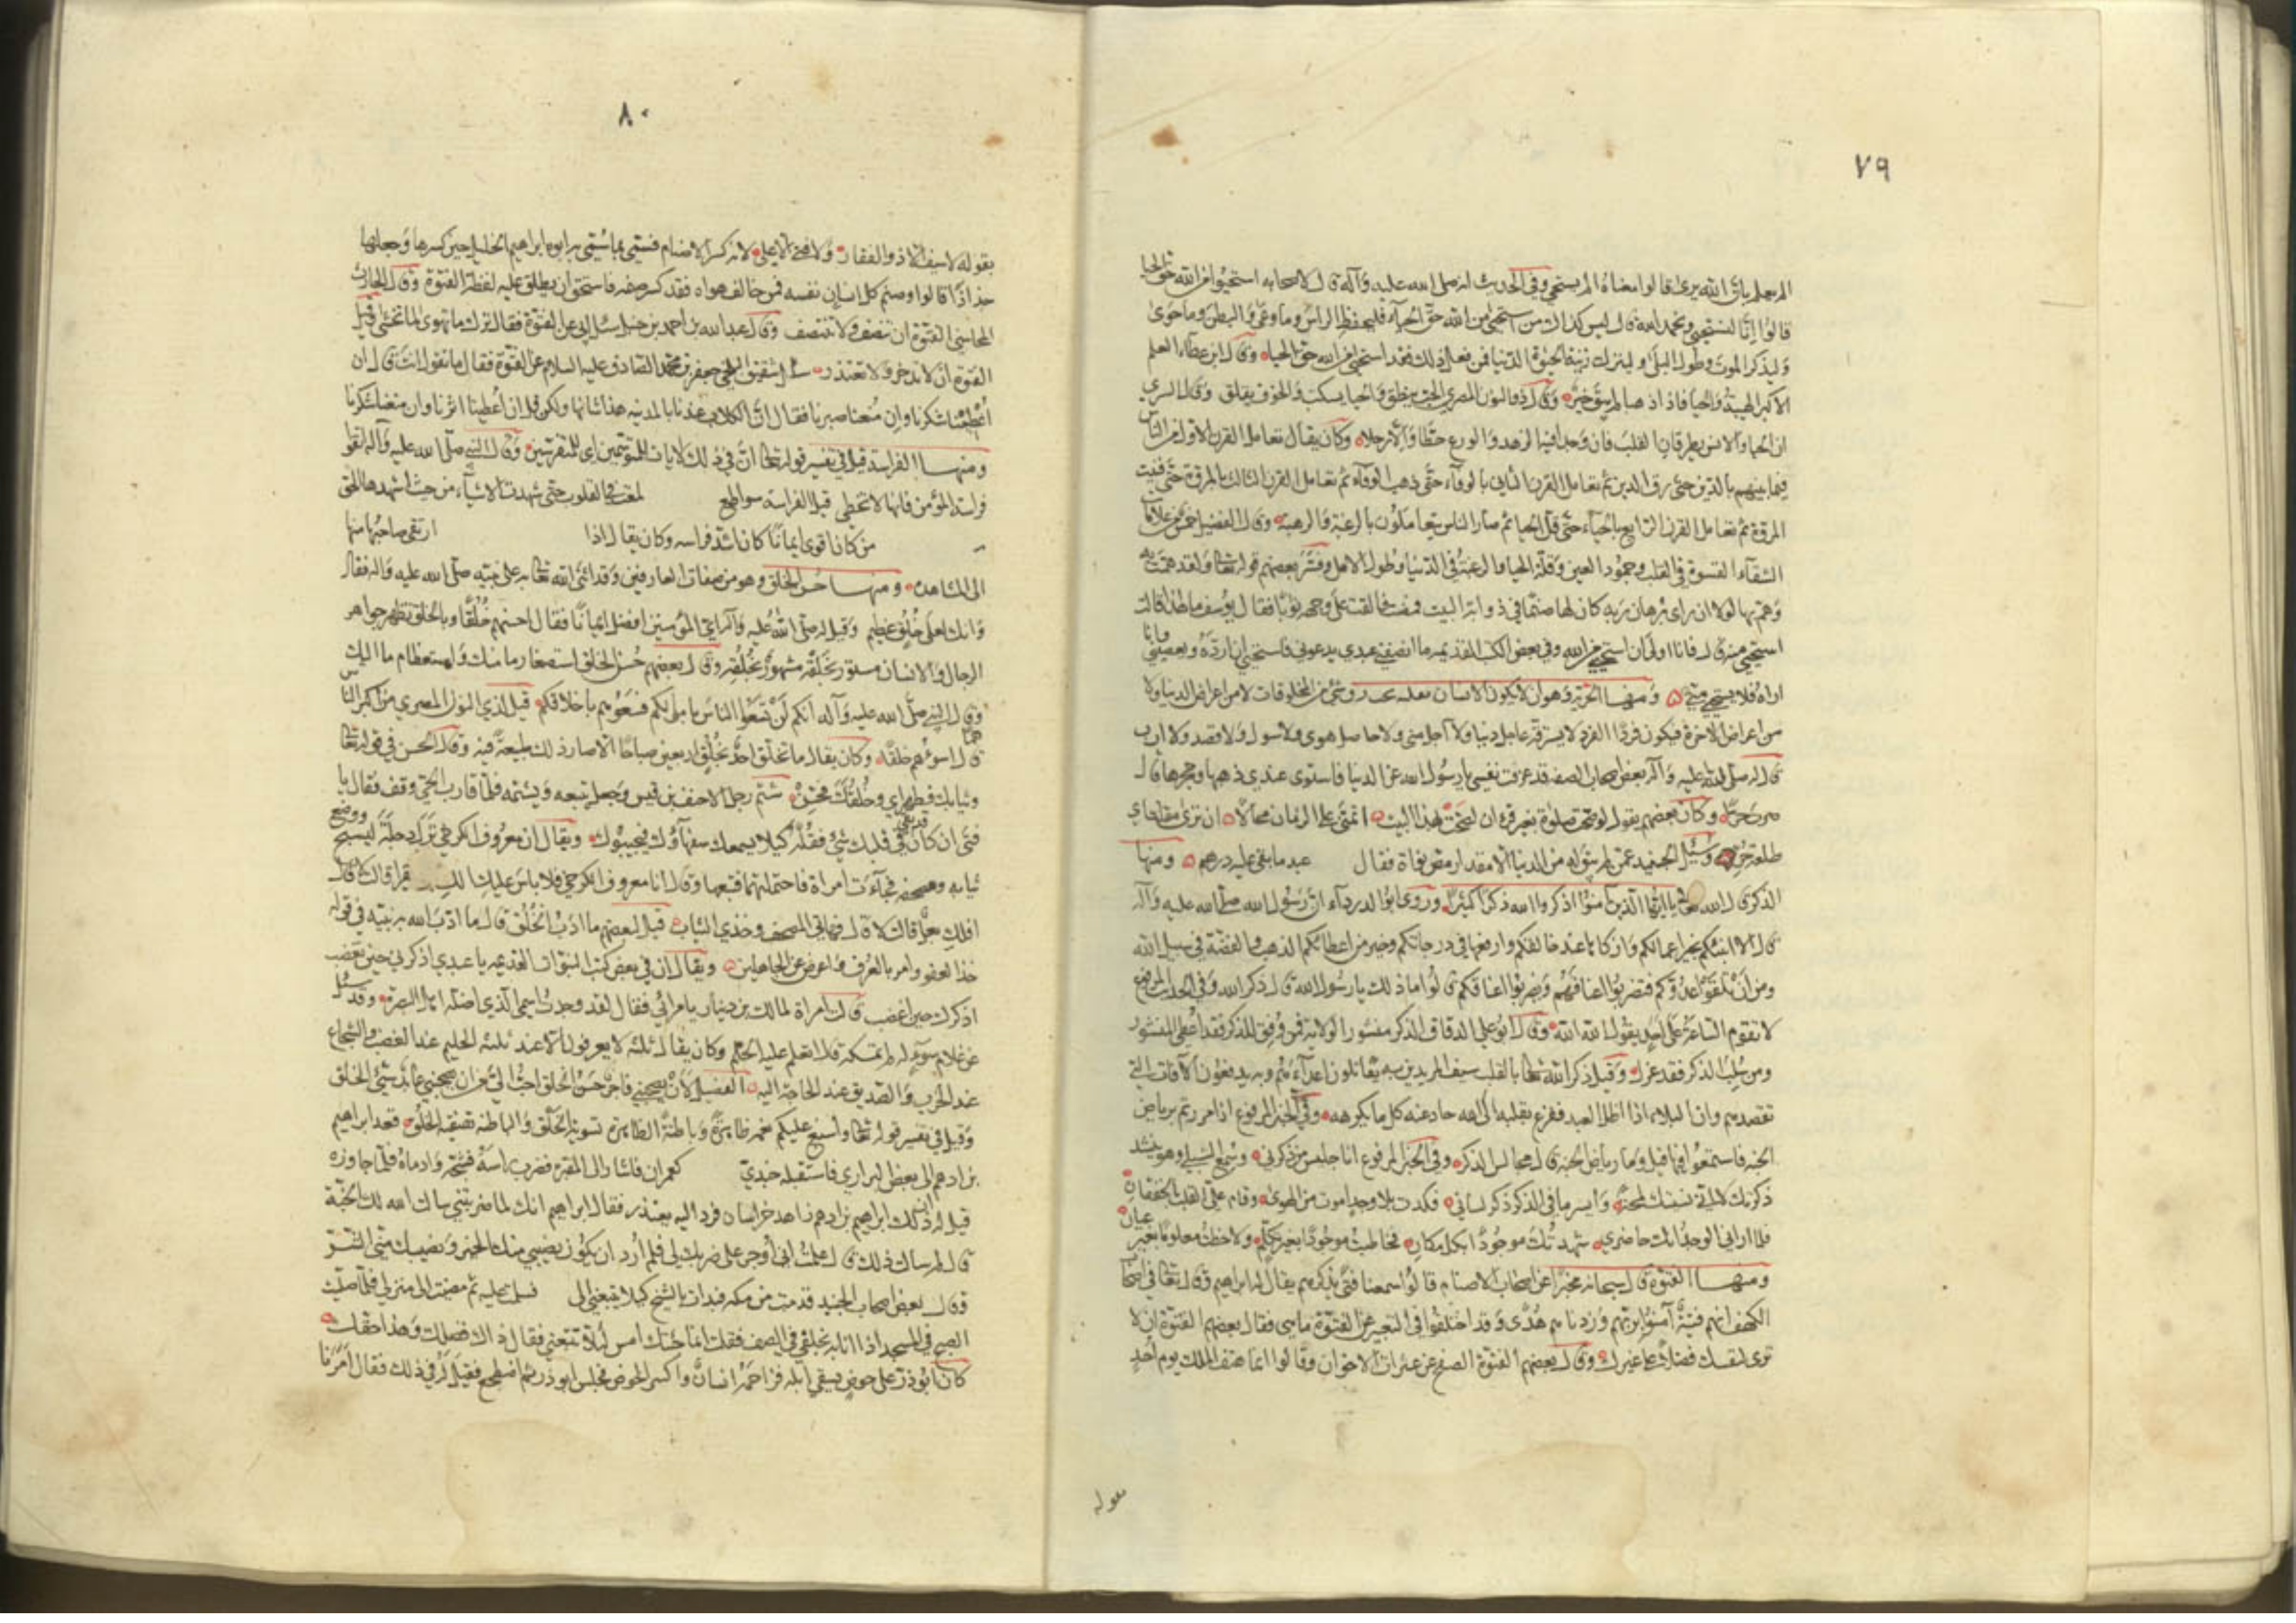 ٧٩
الم يعلم بان الله يرى قالوا معناه الم يستحي وفي الحديث انه صلى الله عليه وآله قال لاصحابه استحيوا من الله حق الحيا
قالوا انا لنستحيي ونحمد الله قال ليس كذلك من استحيى من الله حق الحياء فليحفظ الراس وما وعى والبطن وما حوى
وليذكر الموت وطول البلى وليترك زينة الحيوة الدنيا فمن فعل ذلك فقد استحيى من الله حق الحياء وقال ابن عطاء العلم
الاكبر الهيبة والحيا فاذا ذهبا لم يبق خير وقال ذو النون المصري الحب ينطق والحيا يسكت والخوف يقلق وقال السري
ان الحيا والانس يطرقان القلب فان وجدا فيه الزهد والورع حطا والا رحلا وكان يقال تعامل القرن الاول من الناس
فيما بينهم بالدين حتى رق الدين ثم تعامل القرن الثاني بالوفاء حتى ذهب الوفاء ثم تعامل القرن الثالث بالمروة حتى فنيت
المروة ثم تعامل القرن الرابع بالحياء حتى قل الحيا ثم صار الناس يتعاملون بالرغبة والرهبة وقال الفضيل خمس من علامات
الشقاء القسوة في القلب وجمود العين وقلة الحيا والرغبة في الدنيا وطول الامل وفسر بعضهم قوله تعالى ولقد همت به
وهم بها لولا ان راى برهان ربه كان لها صنم في زاوية البيت فمضت فالقت على وجهه ثوبا فقال يوسف ما هذا قالت
استحيي منه قال فانا اولى ان استحيي من الله وفي بعض الكتب القديمة ما انصفني عبدي يدعوني فاستحيي ان ارده ويعصيني وانا
اراه فلا يستحي مني ومنها الحرية وهو ان لا يكون الانسان بقلبه تحت رق شيء من المخلوقات لا من اعراض الدنيا ولا
من اعراض الاخرة فيكون فردا لفرد لا يسترقه عاجل دنيا ولا آجل منى ولا حاصل هوى ولا سؤل ولا قصد ولا ارب
قال له صلى الله عليه وآله بعض اصحاب الصفة قد عزفت نفسي يا رسول الله عن الدنيا فاستوى عندي ذهبها وحجرها قال
صرت حرا وكان بعضهم يقول لو صحت صلوة بغير قران لصحت بهذا البيت اتمنى على الزمان محالا ان ترى مقلتاي
طلعة حر وسئل الجنيد عمن لم يبق له من الدنيا الا مقدار مص نواة فقال عبد ما بقي عليه درهم ومنها
الذكر قال الله تعالى يا ايها الذين آمنوا اذكروا الله ذكرا كثيرا وروى ابو الدرداء ان رسول الله صلى الله عليه وآله
قال الا انبئكم بخير اعمالكم وازكاها عند خالقكم وارفعها في درجاتكم وخير من اعطائكم الذهب والفضة في سبيل الله
ومن ان تلقوا عدوكم فتضربوا اعناقهم ويضربوا اعناقكم قالوا ما ذلك يا رسول الله قال ذكر الله وفي الحديث المرفوع
لا تقوم الساعة على احد يقول الله الله وقال ابو علي الدقاق الذكر منشور الولاية فمن وفق للذكر فقد اعطي المنشور
ومن سلب الذكر فقد عزل وقيل ذكر الله تعالى بالقلب سيف المريدين به يقاتلون اعداءهم وبه يدفعون الآفات التي
تقصدهم وان البلاء اذا اظل العبد ففزع بقلبه الى الله حاد عنه كل ما يكرهه وفي الخبر المرفوع اذا مررتم برياض
الجنة فارتعوا فيها قيل وما رياض الجنة قال مجالس الذكر وفي الخبر المرفوع انا جليس من ذكرني وسمع الشبلي وهو ينشد
ذكرتك لا اني نسيتك لمحة وايسر ما في الذكر ذكر لساني فكدت بلا وجد اموت من الهوى وقام علي القلب بالخفقان
فلما اراني الوجد انك حاضري شهدتك موجودا بكل مكان فخاطبت موجودا بغير تكلم ولاحظت معلوما بغير عيان
ومنها الفتوة قال سبحانه مخبرا عن اصحاب الاصنام قالوا سمعنا فتى يذكرهم يقال له ابراهيم وقال تعالى في اصحاب
الكهف انهم فتية آمنوا بربهم وزدناهم هدى وقد اختلفوا في التعبير عن الفتوة ما هي فقال بعضهم الفتوة ان لا
ترى لنفسك فضلا على غيرك وقال بعضهم الفتوة الصفح عن عثرات الاخوان وقالوا انما هتف الملك يوم احد
بقوله
٨٠
بقوله لا سيف الا ذو الفقار ولا فتى الا علي لانه كسر الاصنام فسمي بما سمي به ابوه ابراهيم الخليل حين كسرها وجعلها
جذاذا قالوا وصنم كل انسان نفسه فمن خالف هواه فقد كسر صنمه فاستحق ان يطلق عليه لفظ الفتوة وقال الحارث
المحاسبي الفتوة ان تنصف ولا تنتصف وقال عبد الله بن احمد بن حنبل سئل ابي عن الفتوة فقال ترك ما تهوى لما تخشى وقيل
الفتوة ان لا تدخر ولا تعتذر سال شقيق البلخي جعفر بن محمد الصادق عليه السلام عن الفتوة فقال ما تقول انت قال ان
اعطينا شكرنا وان منعنا صبرنا فقال ان الكلاب عندنا بالمدينة هذا شانها ولكن قل ان اعطينا اثرنا وان منعنا شكرنا
ومنها الفراسة قيل في تفسير قوله تعالى ان في ذلك لايات للمتوسمين اي للمتفرسين وقال النبي صلى الله عليه وآله اتقوا
فراسة المؤمن فانها لا تخطي قيل الفراسة سواطع لمعت في القلوب حتى شهدت الاشياء من حيث اشهدها الحق
من كان اقوى ايمانا كان اشد فراسة وكان يقال اذا ارتقى صاحبها منها
الى المشاهدة ومنها حسن الخلق وهو من صفات العارفين وقد اثنى الله تعالى به على نبيه صلى الله عليه وآله فقال
وانك لعلى خلق عظيم وقيل له صلى الله عليه وآله اي المؤمنين افضل ايمانا فقال احسنهم خلقا وبالخلق تظهر جواهر
الرجال والانسان مستور بخلقه مشهور بخلقه وقال بعضهم حسن الخلق استصغار ما منك واستعظام ما اليك
وقال النبي صلى الله عليه وآله انكم لن تسعوا الناس باموالكم فسعوهم باخلاقكم قيل لذي النون المصري من اكبر الناس هما
قال اسوؤهم خلقا وكان يقال ما تخلق احد بخلق اربعين صباحا الا صار ذلك طبيعة فيه وقال الحسن في قوله تعالى
وثيابك فطهر اي وخلقك فحسن شتم رجل الاحنف بن قيس وجعل يتبعه ويشتمه فلما قارب الحي وقف فقال يا
فتى ان كان قد بقي في قلبك شيء فقله كيلا يسمعك سفهاؤنا فيجيبوك ويقال ان معروف الكرخي نزل دجلة ليسبح ووضع
ثيابه ومصحفه فجاءت امراة فاحتملتهما فتبعها وقال انا معروف الكرخي فلا باس عليك الك ابن يقرا قالت لا قال
افلك بعل قالت لا قال فهاتي المصحف وخذي الثياب قيل لبعضهم ما ادب الخلق قال ما ادب الله به نبيه في قوله
خذ العفو وامر بالعرف واعرض عن الجاهلين ويقال ان في بعض كتب النبوات القديمة يا عبدي اذكرني حين تغضب
اذكرك حين اغضب قالت امراة لمالك بن دينار يا مرائي فقال لقد وجدت اسمي الذي اضله اهل البصرة وقد سئل
عن غلام سوء له لم تمسكه قال اتعلم عليه الحلم وكان يقال ثلثة لا يعرفون الا عند ثلثة الحليم عند الغضب والشجاع
عند الحرب والصديق عند الحاجة اليه الفضيل لان يصحبني فاجر حسن الخلق احب الي من ان يصحبني عابد سيئ الخلق
وقيل في تفسير قوله تعالى واسبغ عليكم نعمه ظاهرة وباطنة الظاهرة تسوية الخلق والباطنة تصفية الخلق قصد ابراهيم
بن ادهم الى بعض البراري فاستقبله جندي العمران فاشار الى المقبرة فضرب راسه فشجه وادماه فلما جاوزه
قيل له ان ذلك ابراهيم بن ادهم زاهد خراسان فرد اليه يعتذر فقال ابراهيم انك لما ضربتني سالت الله لك الجنة
قال لم سالت ذلك قال علمت اني اوجر على ضربك لي فلم ارد ان يكون نصيبي منك الخير ونصيبك مني الشر
وقال بعض اصحاب الجنيد قدمت من مكة فبدات بالشيخ كيلا يتعنى الي فسلمت عليه ثم مضيت الى منزلي فلما صليت
الصبح في المسجد اذا انا به خلفي في الصف فقلت انما جئتك امس لئلا تتعنى فقال ذاك فضلك وهذا حقك
كان ابو ذر على حوض يسقي ابله فزاحمه انسان واكسر الحوض فجلس ابو ذر ثم اضطجع فقيل له في ذلك فقال امرنا